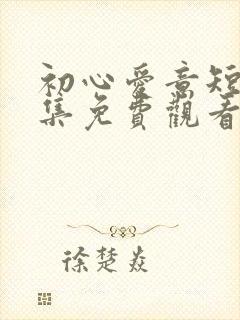 初心愛意短
集免費觀看
徐楚焱